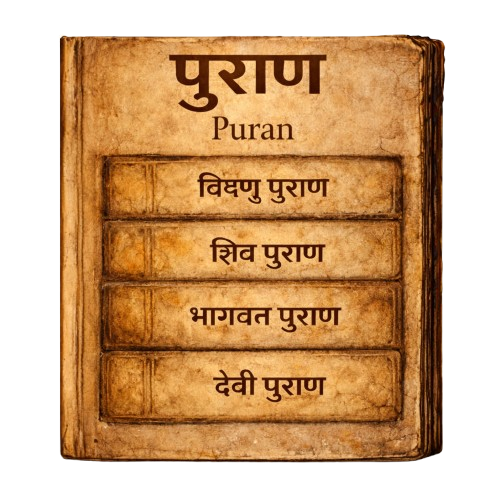 पुराण
Puran
विष्णु पुराण
शिव पुराण
भागवत पुराण
देवी पुराण